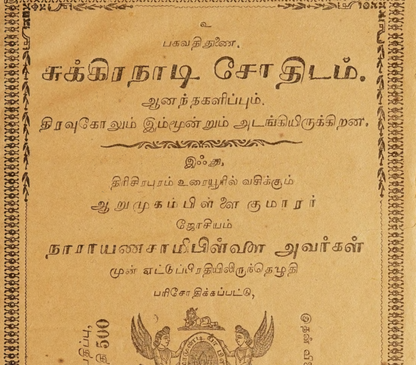 உ
பகவதிதுணை.
சுக்கிரநாடி சோதிடம்.
ஆனந்தகளிப்பும்.
திரவுகோலும் இம்மூன்றும் அடங்கியிருக்கிறன.
இஃது,
திரிசிரபுரம் உரையூரில் வசிக்கும்
ஆறுமுகம்பிள்ளை குமாரர்
ஜோசியம்
நாராயணசாமிபிள்ளை அவர்கள்
முன் ஏட்டுப்பிரதியிலிருந்தெழுதி
பரிசோதிக்கப்பட்டு,
500